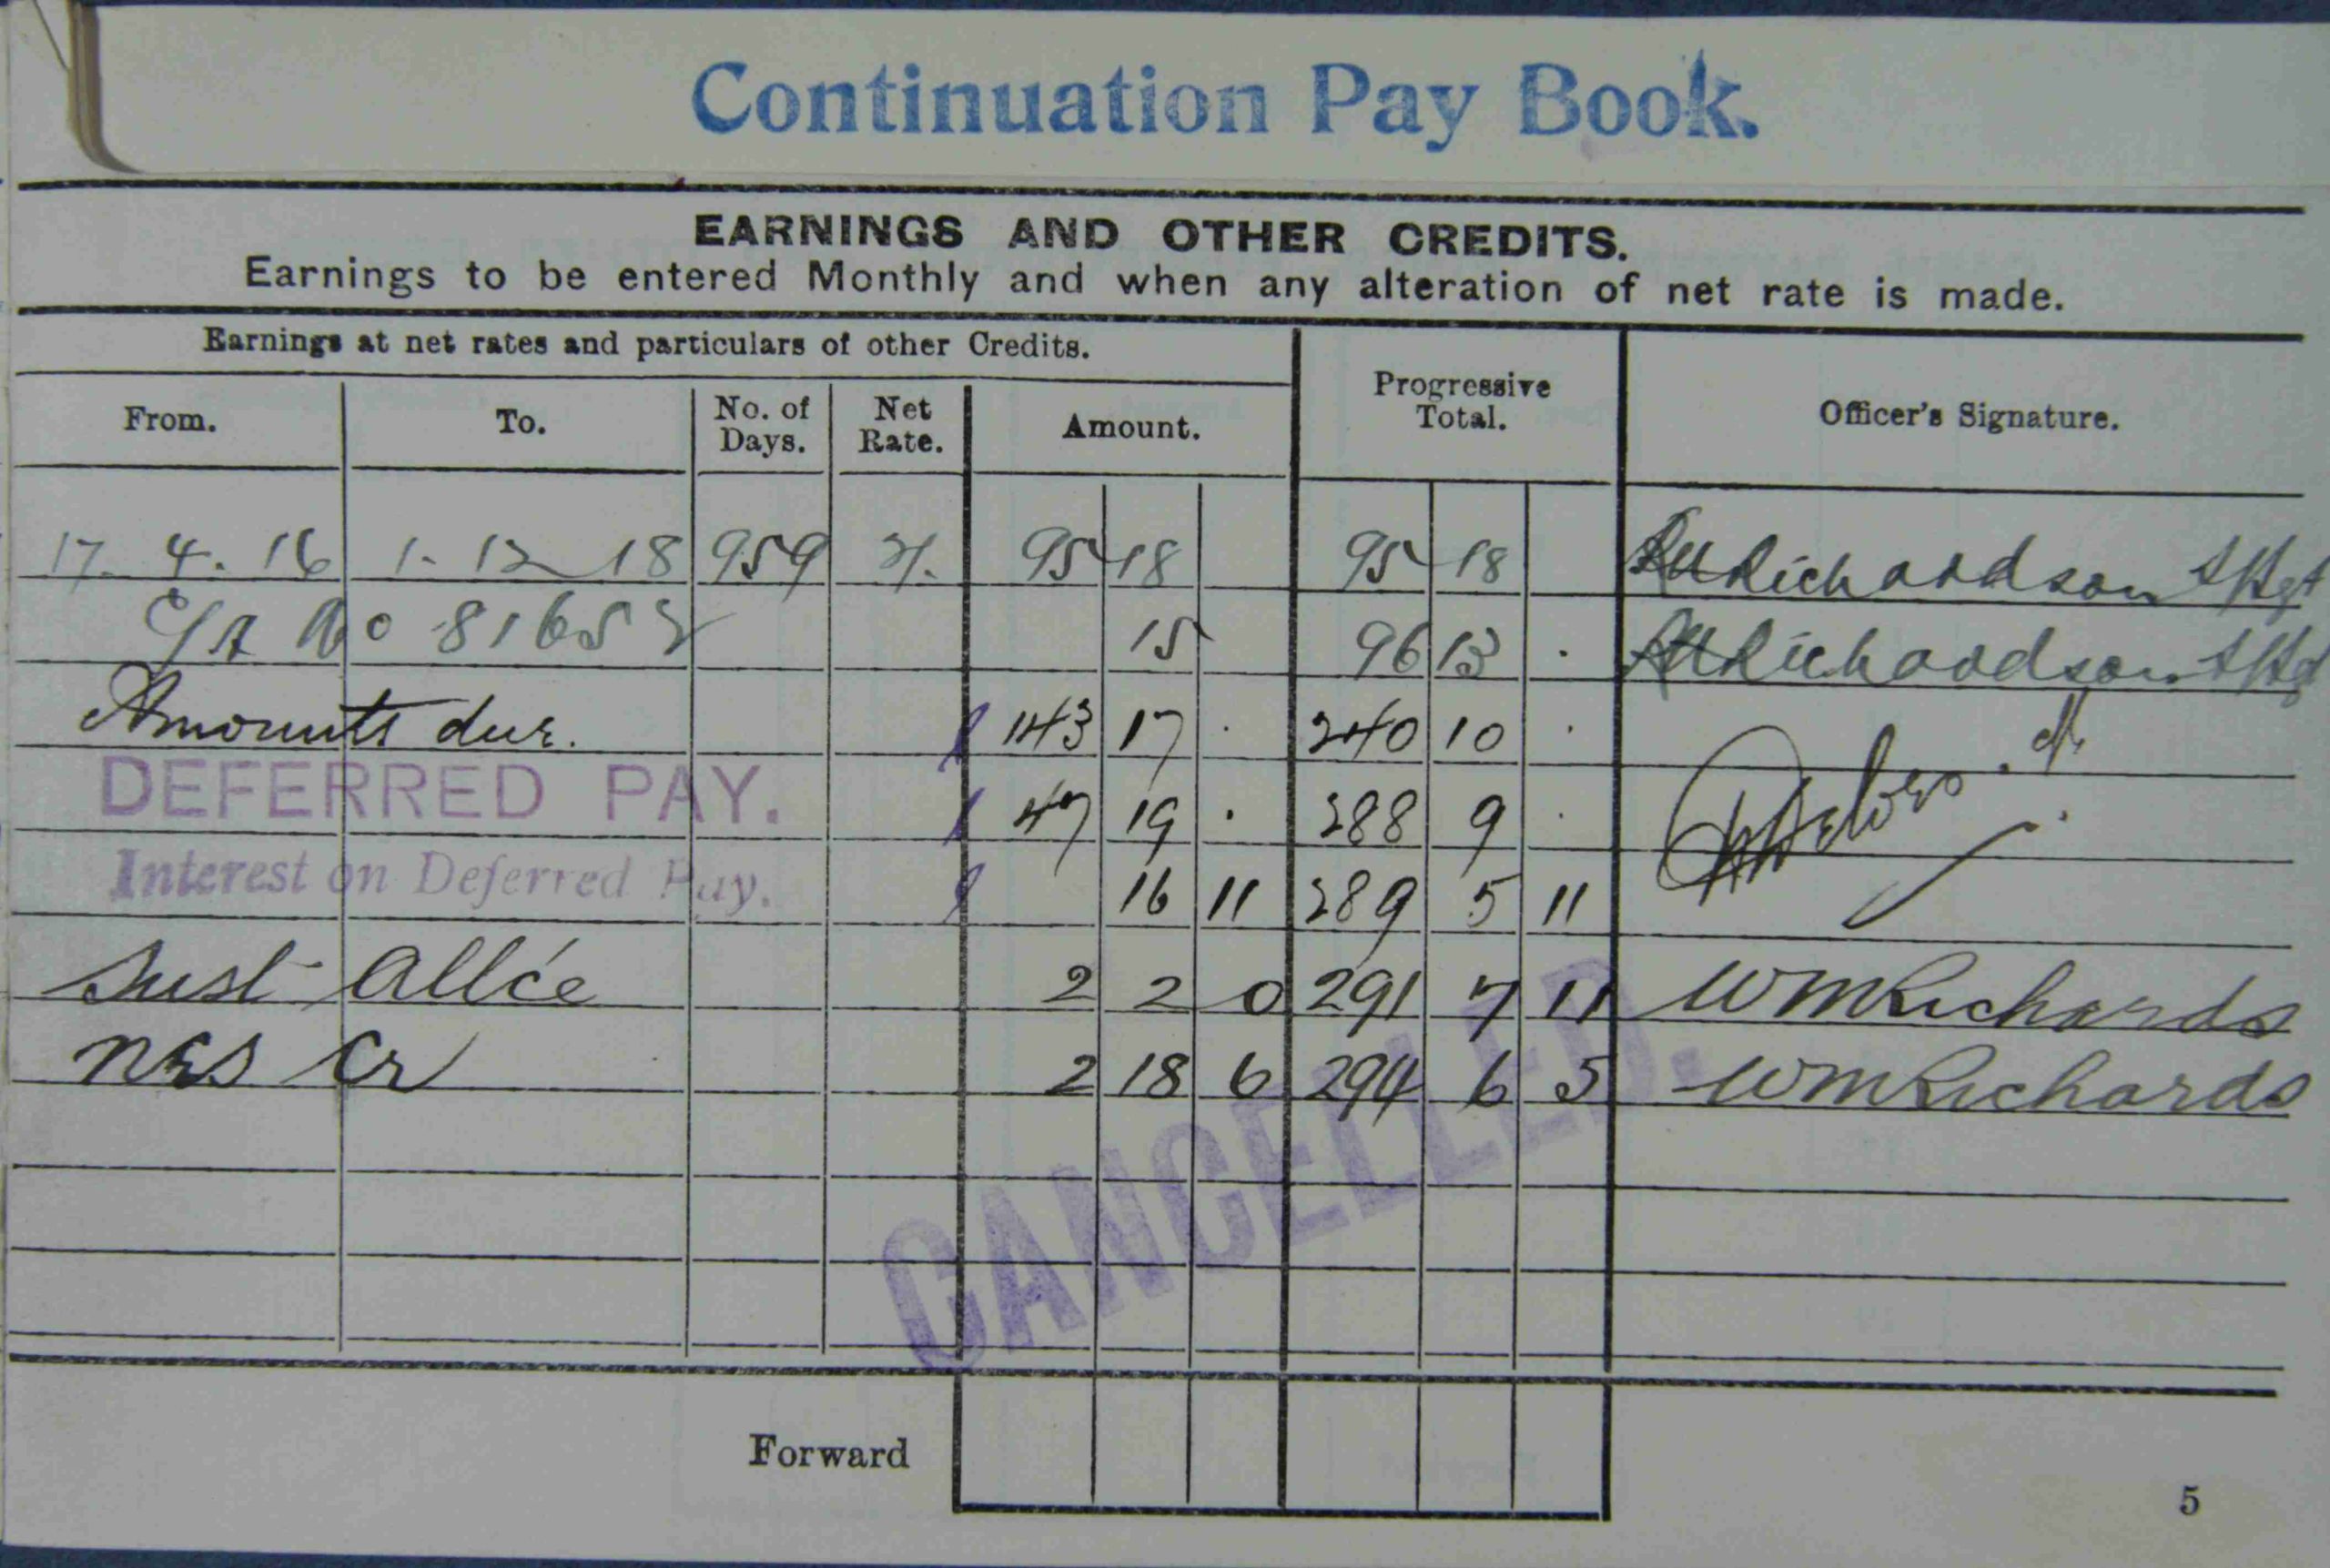 Continuation Pay Book.
EARNINGS AND OTHER CREDITS.
Earnings to be entered Monthly and when any alteration of net rate is made.
Earnings at net rates and particulars of other Credits.
From. To. No. of Days. Net Rate. Amount. Progressive Total. Officer's Signature.
17. 4. 16 1. 12 18 959 2/. 95 18 95 18 Richardson S/Sgt
No 81652 15 96 13 . Richardson S/Sgt
Amounts due. 143 17 . 240 10 .
DEFERRED PAY. 47 19 . 288 9 .
Interest on Deferred Pay. 16 11 289 5 11
Sust Allce 2 2 0 291 7 11 WMRichards
NES Cr 2 18 6 294 6 5 WMRichards
CANCELLED.
Forward
5